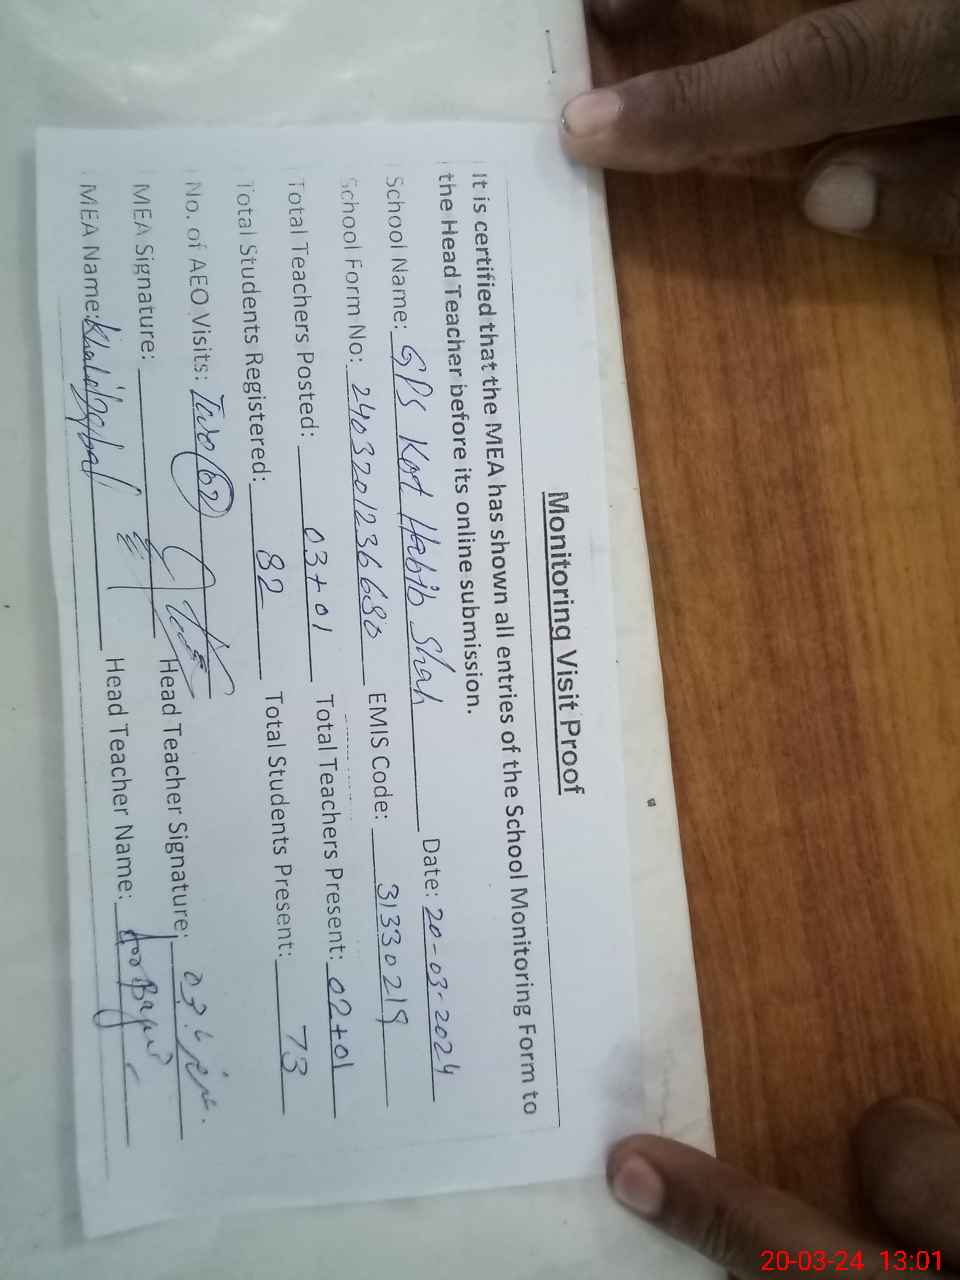 Monitoring Visit Proof
It is certified that the MEA has shown all entries of the School Monitoring Form to
the Head Teacher before its online submission.
School Name: GPS Kot Habib Shah Date: 20-03-2024
School Form No: 24032012366680 EMIS Code: 31330219
Total Teachers Posted: 03+01 Total Teachers Present: 02+01
Total Students Registered: 82 Total Students Present: 73
No. of AEO Visits: Two (02)
MEA Signature: Head Teacher Signature:
MEA Name: Khalid Iqbal Head Teacher Name:
20-03-24 13:01